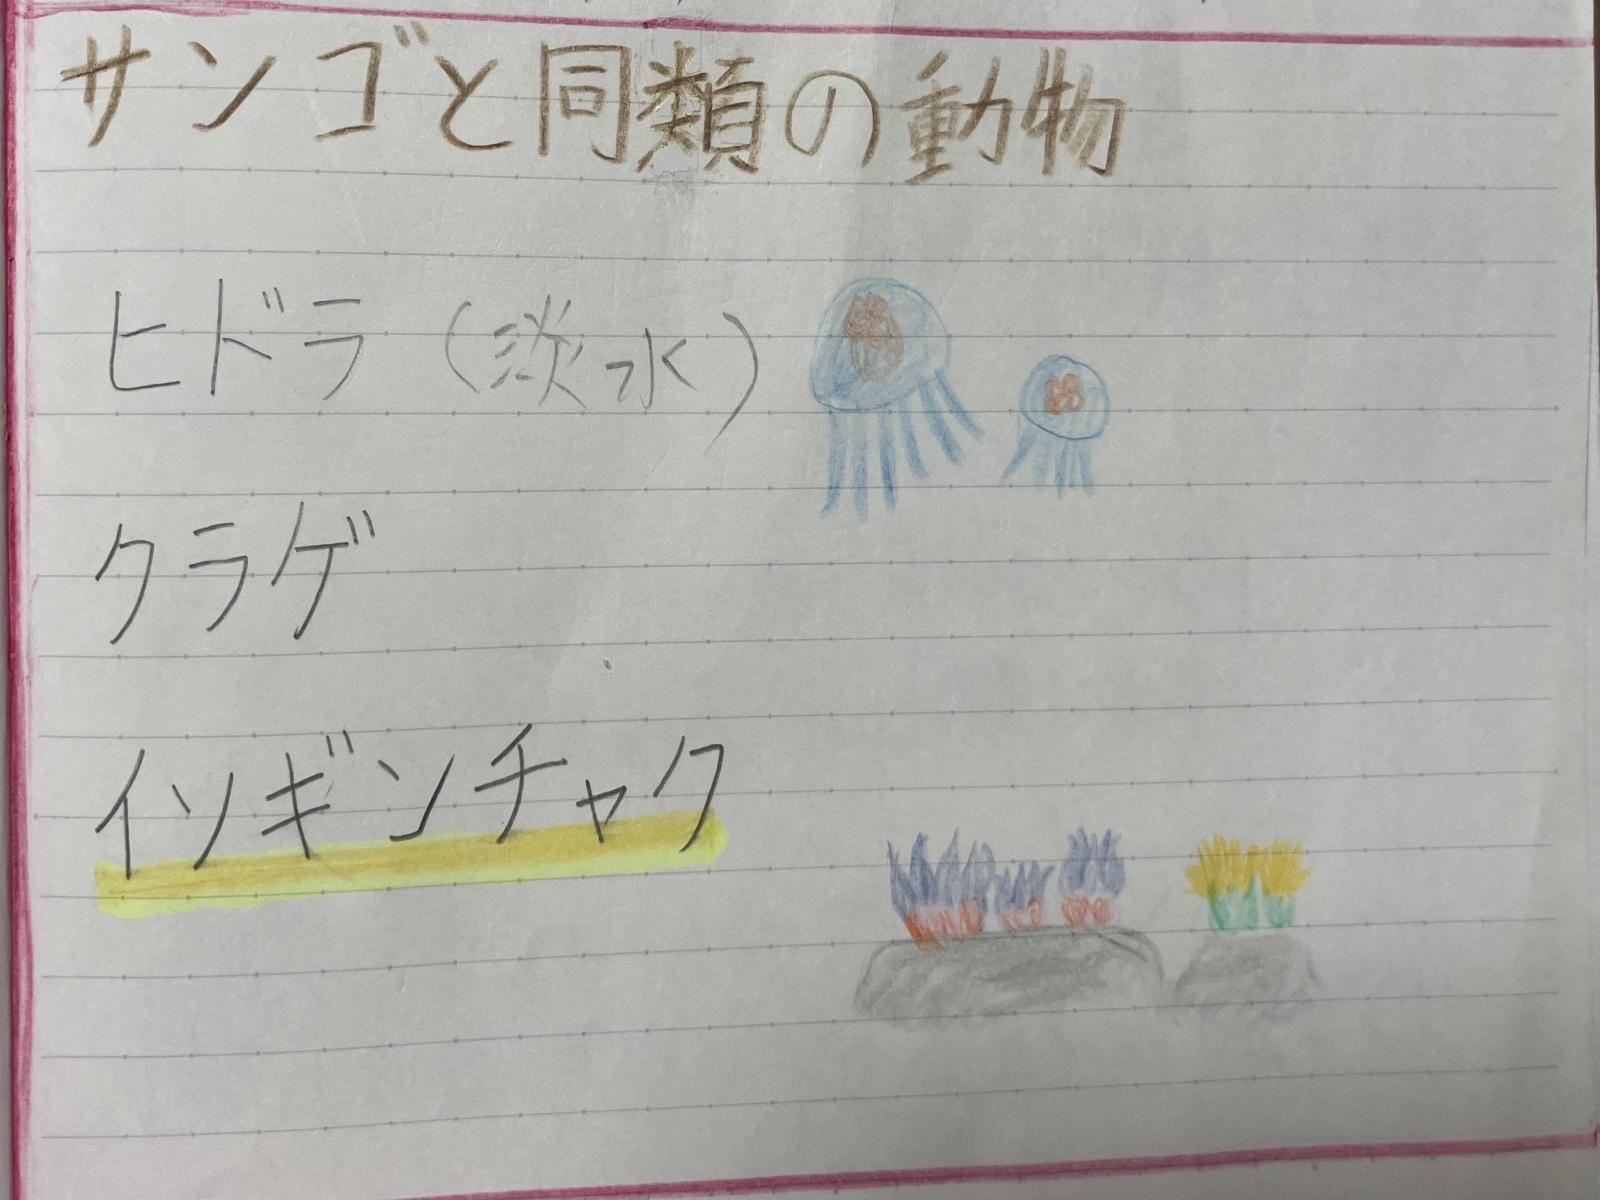 サンゴと同類の動物
ヒドラ(淡水)
クラゲ
イソギンチャク